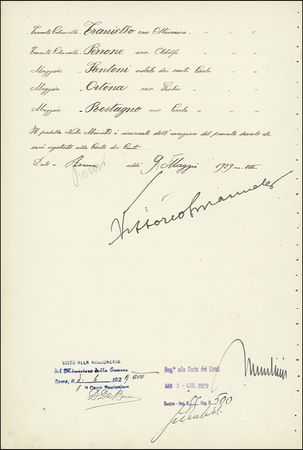 Tenente Colonnello Traniello cav. Ottaviano " "
Tenente Colonnello Perrone cav. " "
Maggiore Fantoni nobile dei conti Carlo " "
Maggiore Ortona cav. " "
Maggiore Restagno cav. Carlo " "
Il predetto Nostro Ministro è incaricato dell'esecuzione del presente decreto che
sarà registrato alla Corte dei Conti.
Dato a Roma addì 9 Maggio 1929 = VII
Vittorio Emanuele
VISTO ALLA RAGIONERIA
del Ministero della Guerra
Roma, 6 192
Il Capo Ragioniere
Reg.to alla Corte dei Conti
1929
Guerra - Reg. Fg. 500
Mussolini